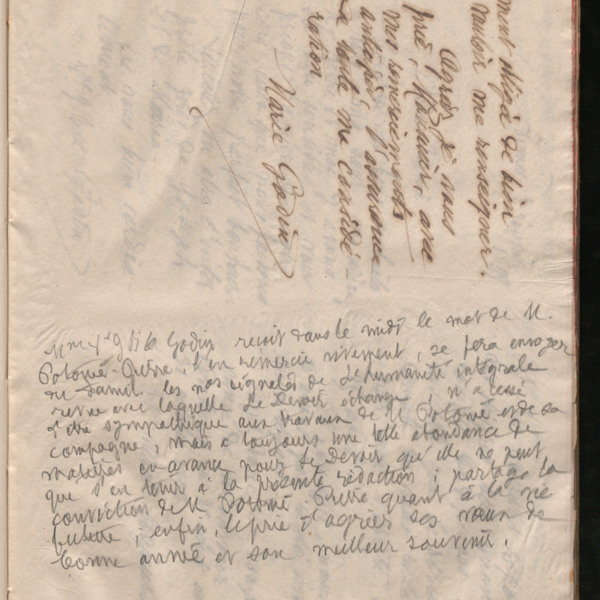 mot déjà de bien
vouloir me renseigner.
Agréez je vous
prie, Monsieur, avec
mes remerciements
anticipés, l'assurance
de toute ma considé-
ration
Marie Godin
Mme Vve Godin reçoit dans le midi le mot de M.
Potonié-Pierre, l'en remercie vivement, se fera envoyer
du Famil. les nos signalés de L'humanité intégrale
revue avec laquelle Le Devoir échange ; n'a cessé
d'être sympathique aux travaux de M. Potonié et de sa
compagne, mais a toujours une telle abondance de
matières en avance pour le Devoir qu'elle ne peut
que s'en tenir à la présente rédaction ; partage la
conviction de M. Potonié-Pierre quant à la vie
future ; enfin, le prie d'agréer ses vœux de
bonne année et son meilleur souvenir.